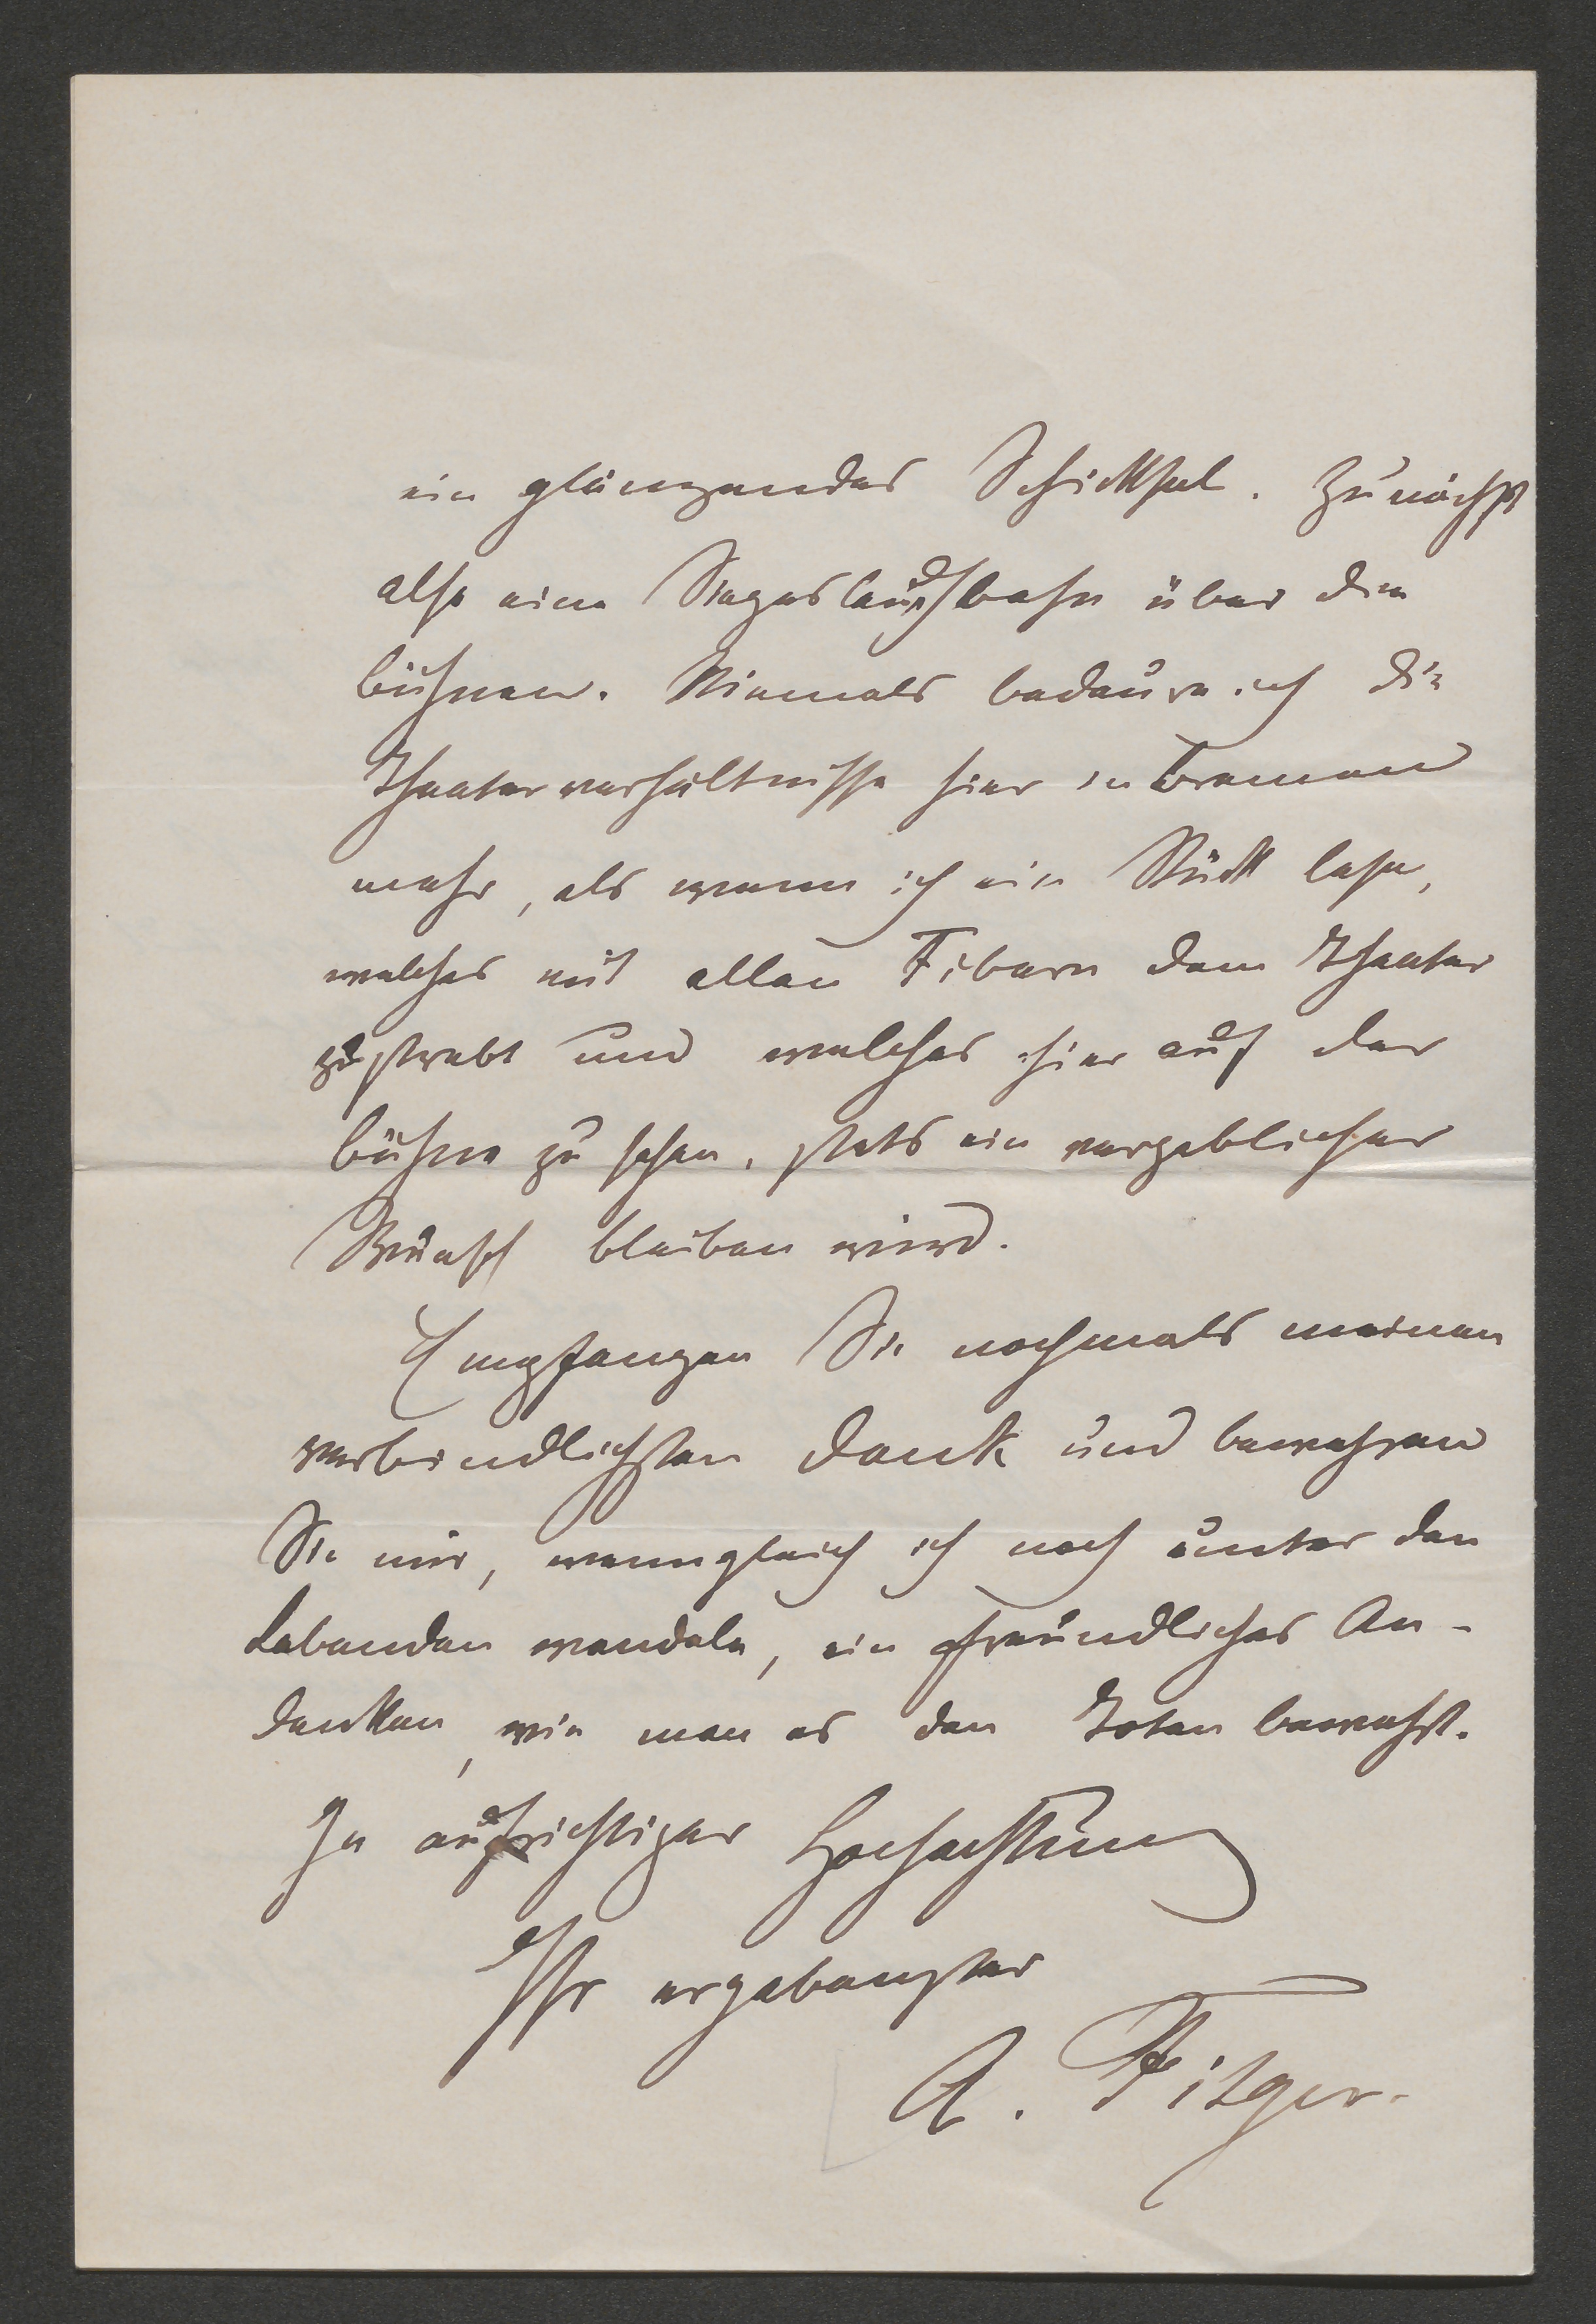 ein glänzendes Schicksal. Zunächst
also eine Siegeslaufbahn über die
Bühnen. Niemals bedaure ich die
Theaterverhältnisse hier in Bremen
mehr, als wenn ich ein Stück lese,
welches mit allen Fibern dem Theater
zustrebt und welches hier auf der
Bühne zu sehen, stets ein vergeblicher
Wunsch bleiben wird.
Empfangen Sie nochmals meinen
verbindlichsten Dank und bewahren
Sie mir, wenngleich ich noch unter den
Lebenden wandele, ein freundliches An-
denken, wie man es den Toten bewahrt.
In aufrichtiger Hochachtung
Ihr ergebenster
A. Fitger.